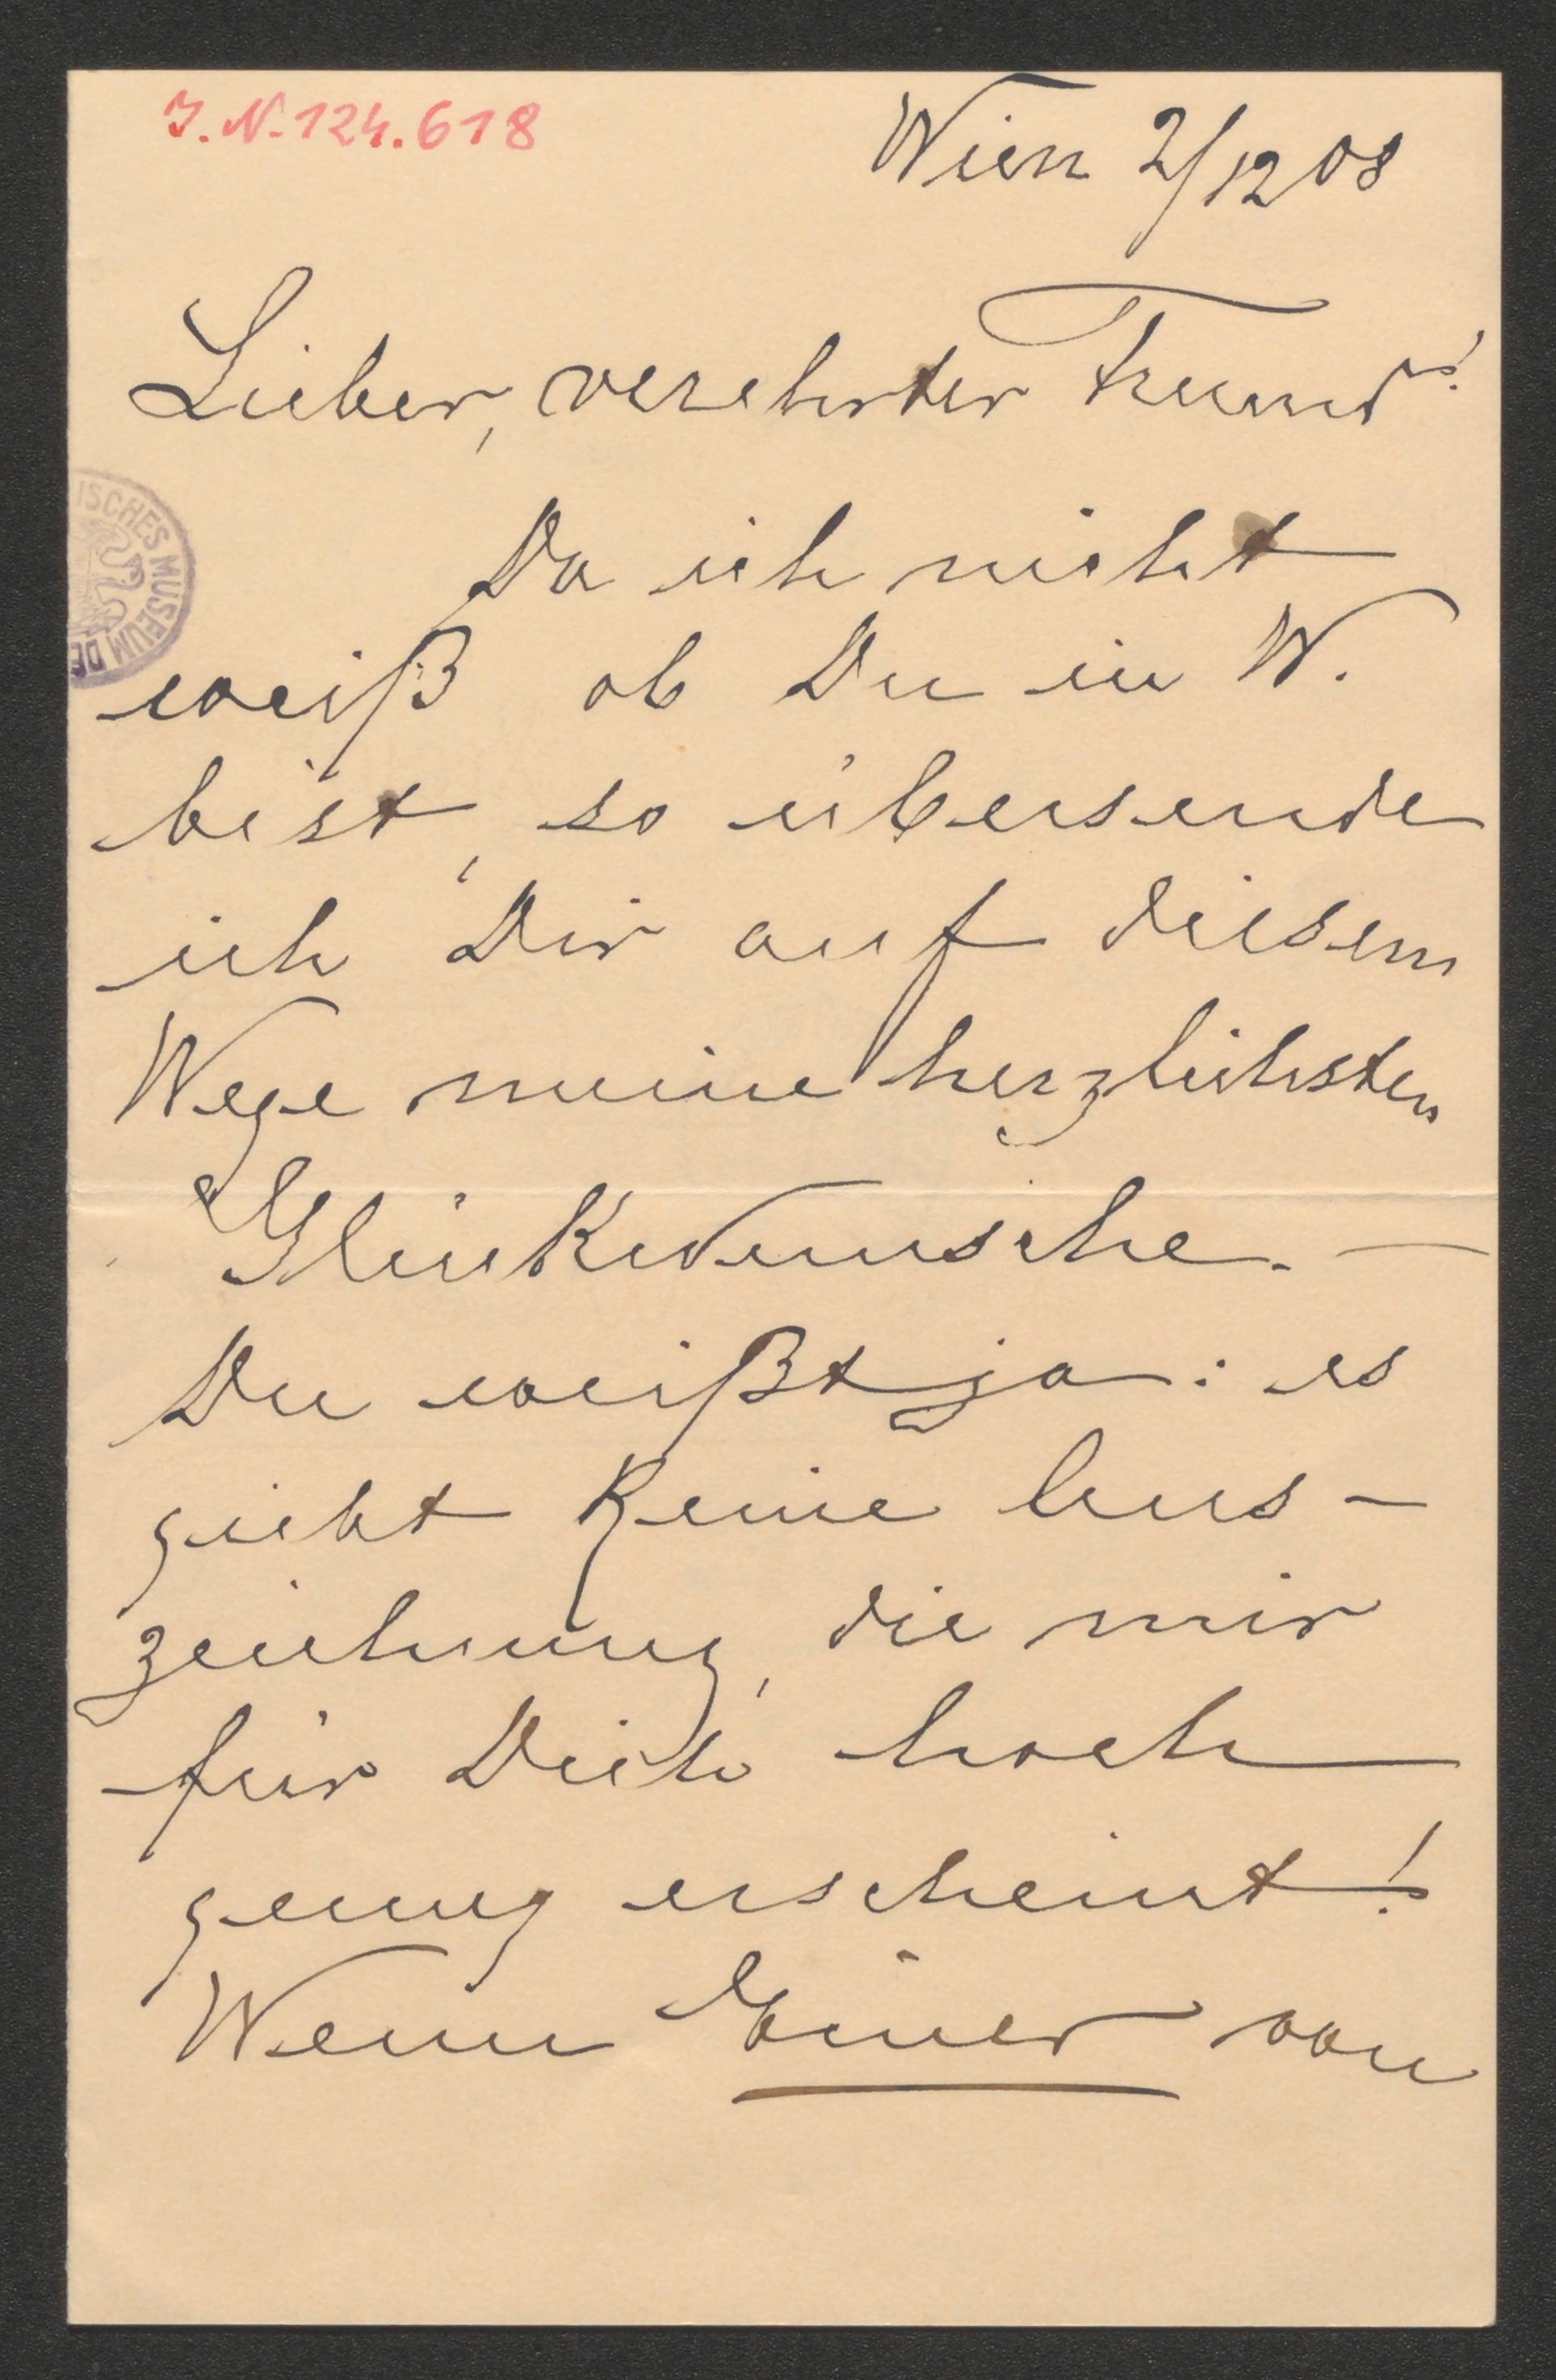 J. N. 124.618
Wien 2/12 08
Lieber, verehrter Freund!
ISCHES MUSEUM DE
Da ich nicht
weiß ob Du in W.
bist, so übersende
ich Dir auf diesem
Wege meine herzlichsten
Glückwünsche. —
Du weißt ja: es
giebt keine Aus-
zeichnung, die mir
für Dich hoch
genug erscheint!
Wenn Einer von